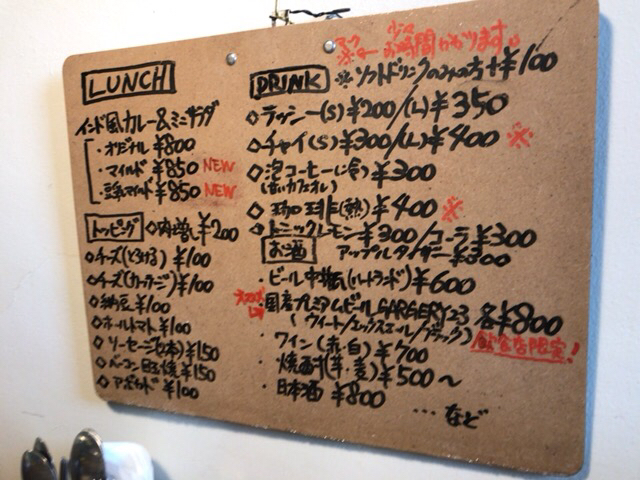 LUNCH
インド風カレー&ミニサラダ
・オリジナル ¥800
・マイルド ¥850 NEW
・豆乳マイルド ¥850 NEW
トッピング ◇肉増し ¥200
◇チーズ(とろける) ¥100
◇チーズ(カッテージ) ¥100
◇納豆 ¥100
◇ホールトマト ¥100
◇ソーセージ(2本) ¥150
◇ベーコン目玉焼 ¥150
◇アボカド ¥100
お時間かかります
DRINK ※ソフトドリンクのみの方+¥100
◇ラッシー(S) ¥200/(L) ¥350
◇チャイ(S) ¥300/(L) ¥400 ※
◇泡コーヒー(冷) ¥300
(甘いカフェオレ)
◇珈琲(熱) ¥400 ※
◇トニックレモン ¥300/コーラ ¥300
アップルタイザー ¥300
お酒
・ビール中瓶(ハートランド) ¥600
・国産プレミアムビール GARGERY23 各¥800
(ウィート/エックスエール/ブラック) 飲食店限定!
・ワイン(赤・白) ¥700
・焼酎(芋・麦) ¥500〜
・日本酒 ¥800
…など